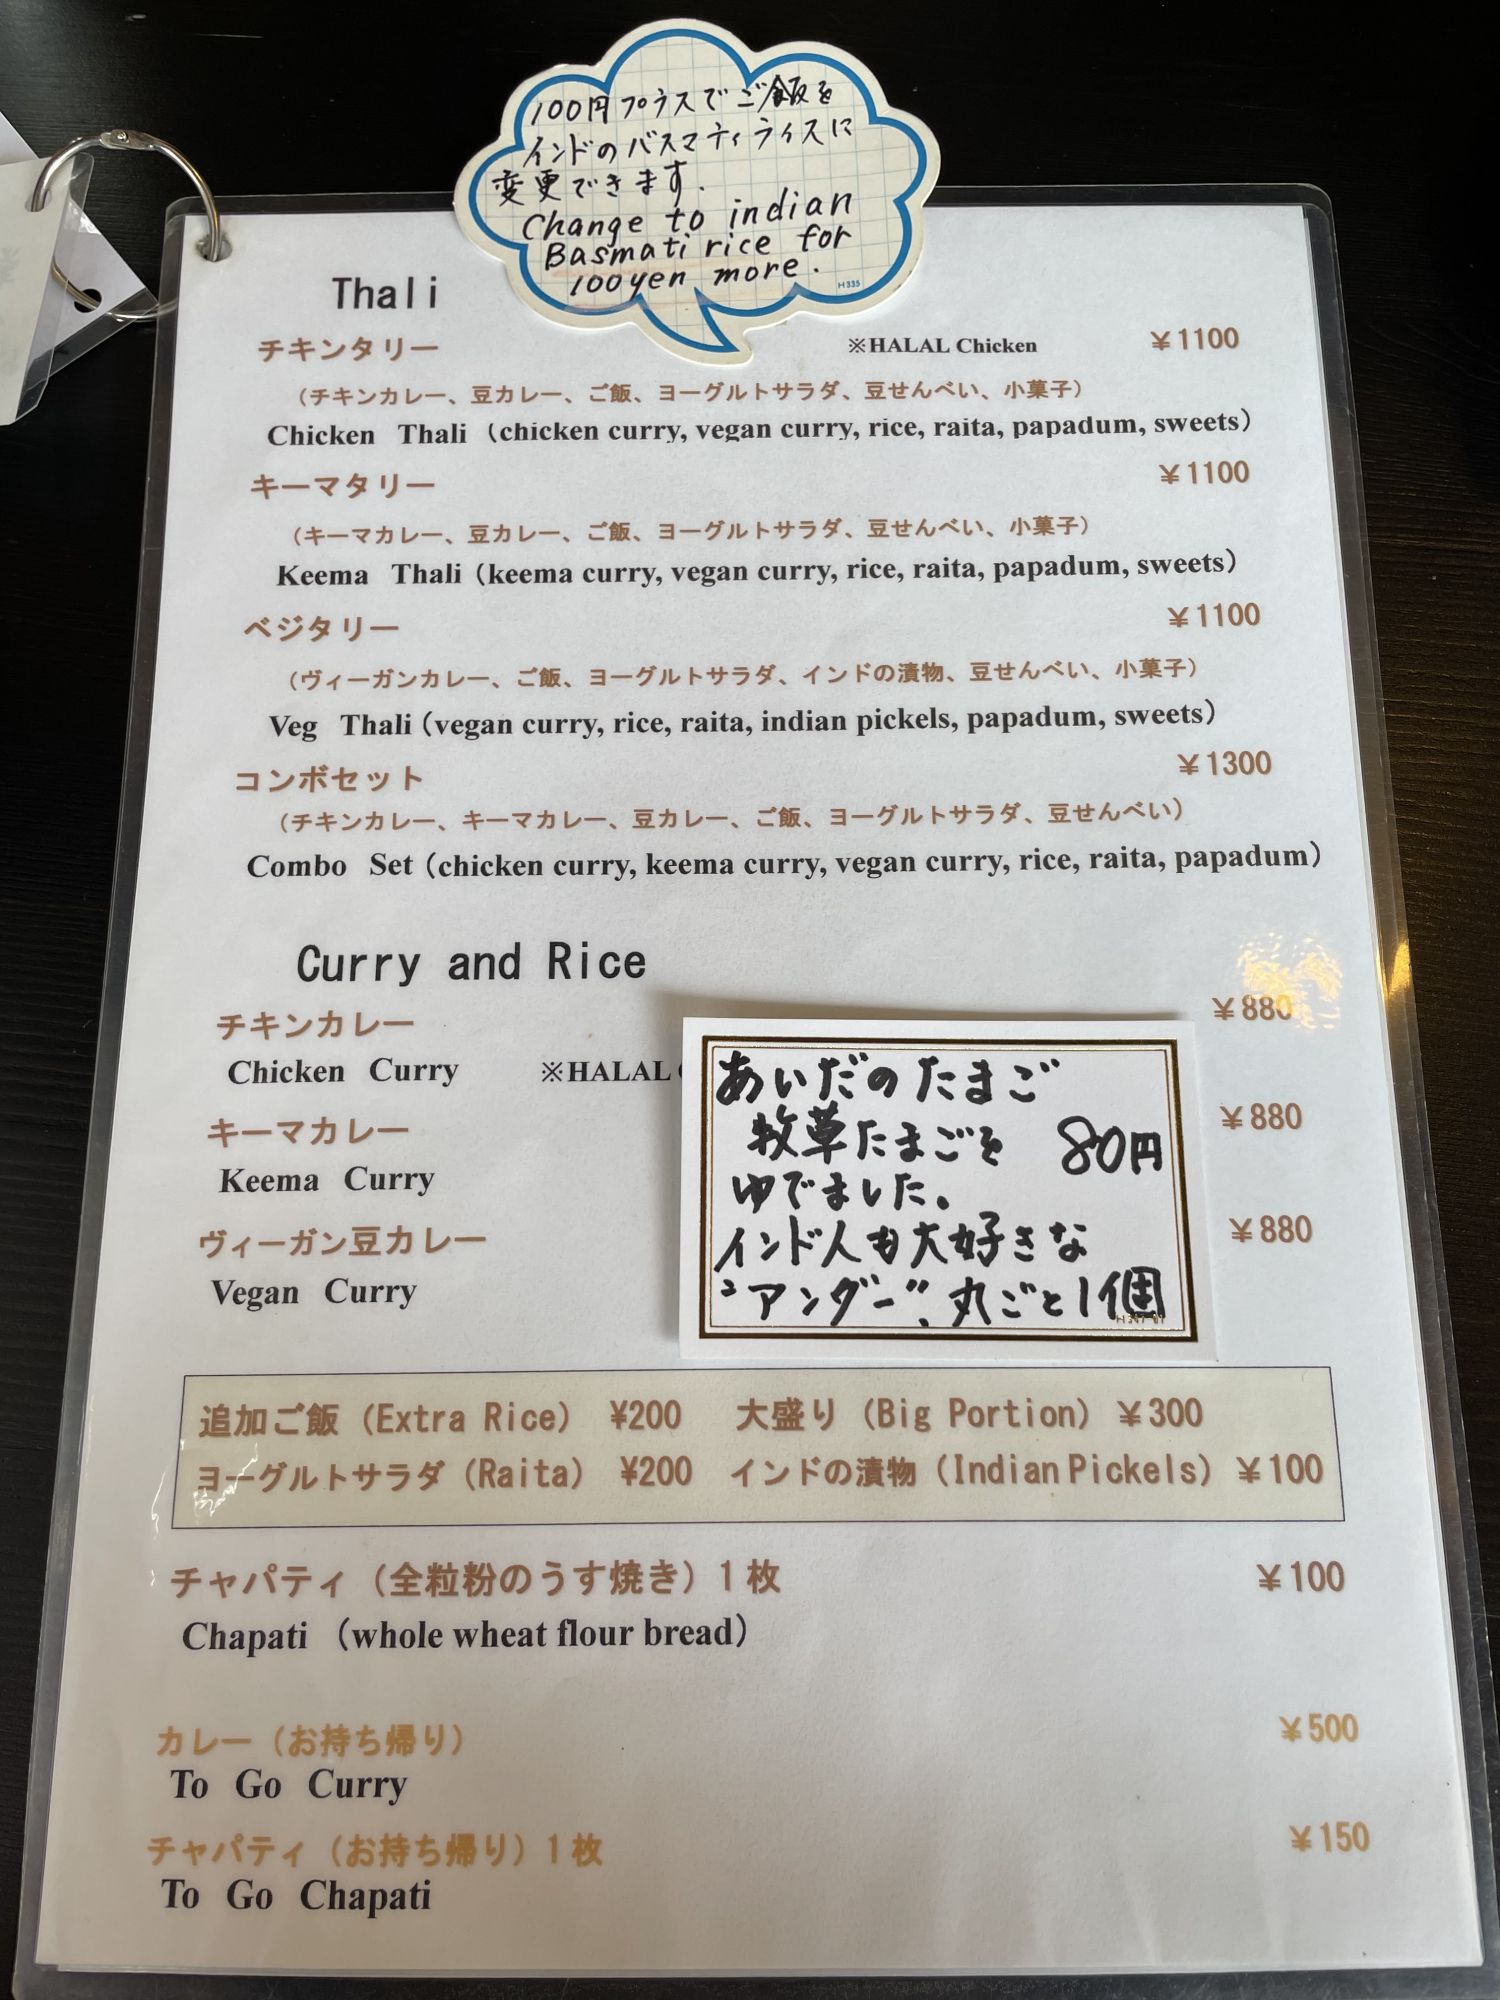 100円プラスでご飯を
インドのバスマティライスに
変更できます.
Change to indian
Basmati rice for
100yen more.
H335
Thali
チキンタリー ※HALAL Chicken ￥1100
（チキンカレー、豆カレー、ご飯、ヨーグルトサラダ、豆せんべい、小菓子）
Chicken Thali（chicken curry, vegan curry, rice, raita, papadum, sweets）
キーマタリー ￥1100
（キーマカレー、豆カレー、ご飯、ヨーグルトサラダ、豆せんべい、小菓子）
Keema Thali（keema curry, vegan curry, rice, raita, papadum, sweets）
ベジタリー ￥1100
（ヴィーガンカレー、ご飯、ヨーグルトサラダ、インドの漬物、豆せんべい、小菓子）
Veg Thali（vegan curry, rice, raita, indian pickels, papadum, sweets）
コンボセット ￥1300
（チキンカレー、キーマカレー、豆カレー、ご飯、ヨーグルトサラダ、豆せんべい）
Combo Set（chicken curry, keema curry, vegan curry, rice, raita, papadum）
Curry and Rice
チキンカレー ￥880
Chicken Curry ※HALAL
キーマカレー ￥880
Keema Curry
ヴィーガン豆カレー ￥880
Vegan Curry
あいだのたまご
牧草たまごを 80円
ゆでました。
インド人も大好きな
"アンダー"、丸ごと1個
追加ご飯（Extra Rice） ¥200 大盛り（Big Portion）￥300
ヨーグルトサラダ（Raita） ¥200 インドの漬物（Indian Pickels）￥100
チャパティ（全粒粉のうす焼き）１枚 ￥100
Chapati （whole wheat flour bread）
カレー（お持ち帰り） ￥500
To Go Curry
チャパティ（お持ち帰り）１枚 ￥150
To Go Chapati